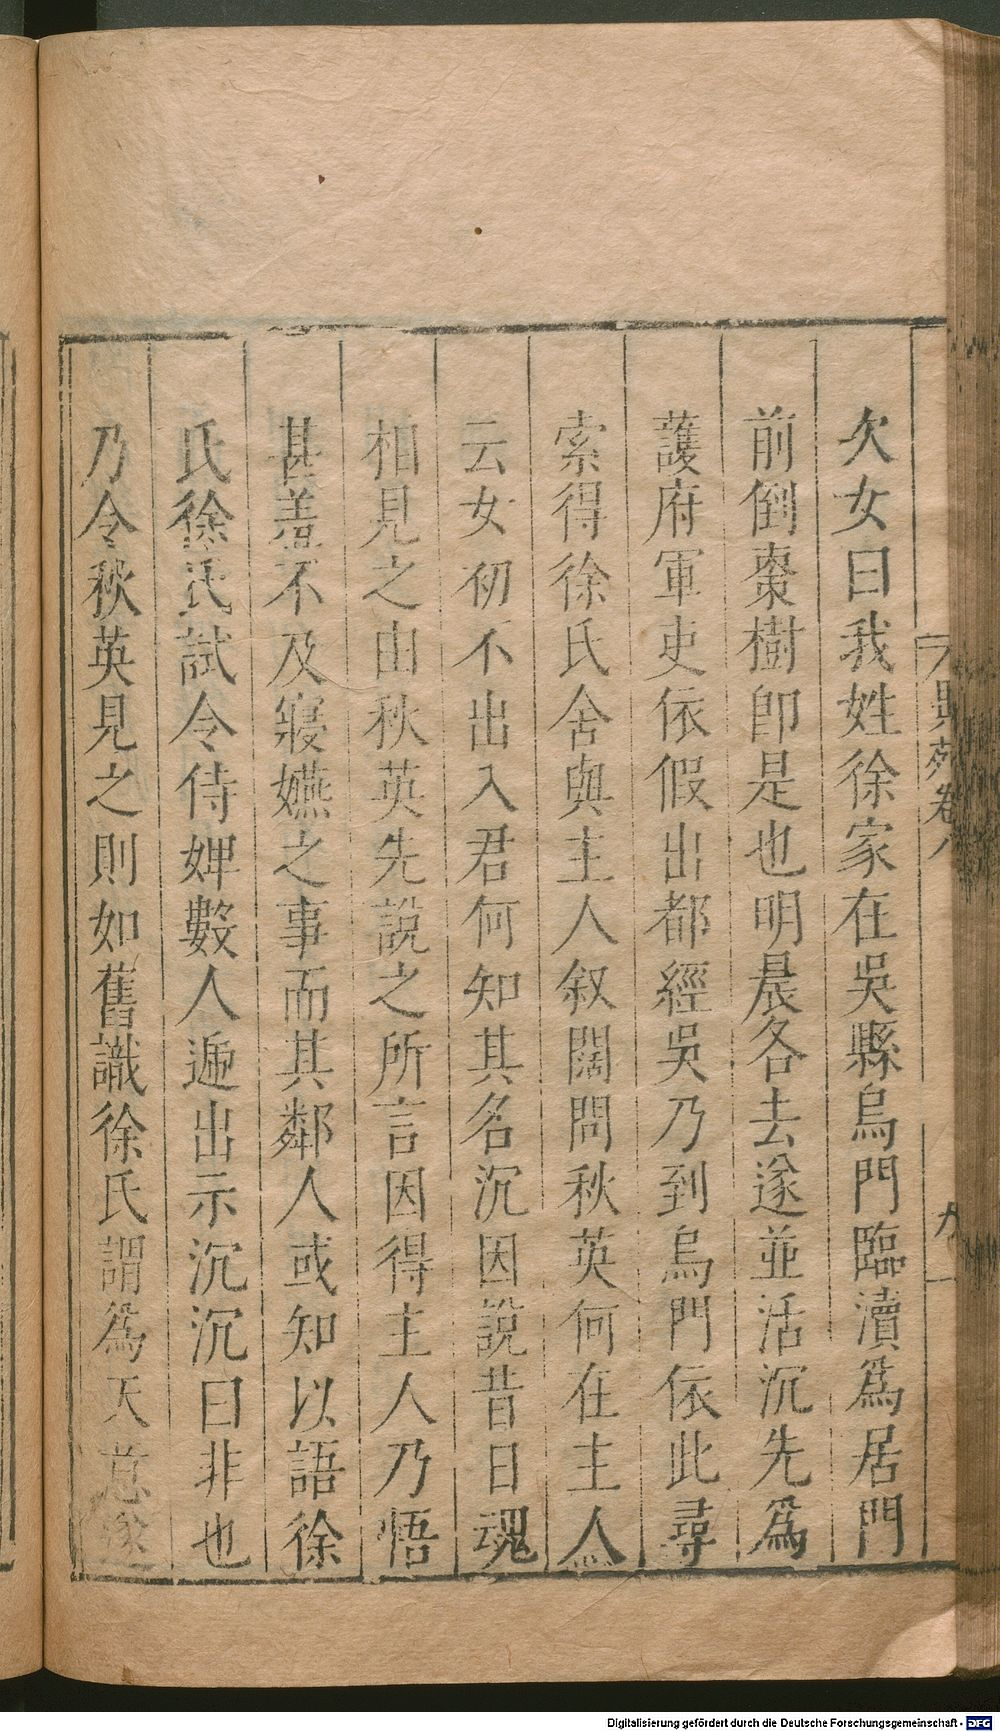 欠女曰我姓徐家在吳縣烏門臨瀆爲居門
前倒棗樹卽是也明晨各去遂並活沉先爲
護府軍吏依假出都經吳乃到烏門依此尋
索得徐氏舍與主人叙闊問秋英何在主人
云女初不出入君何知其名沉因說昔日魂
相見之由秋英先說之所言因得主人乃悟
甚羞不及寢嬿之事而其鄰人或知以語徐
氏徐氏試令侍婢數人遞出示沉沉曰非也
乃令秋英見之則如舊識徐氏謂爲天意遂
異苑卷八
九
Digitalisierung gefördert durch die Deutsche Forschungsgemeinschaft - DFG